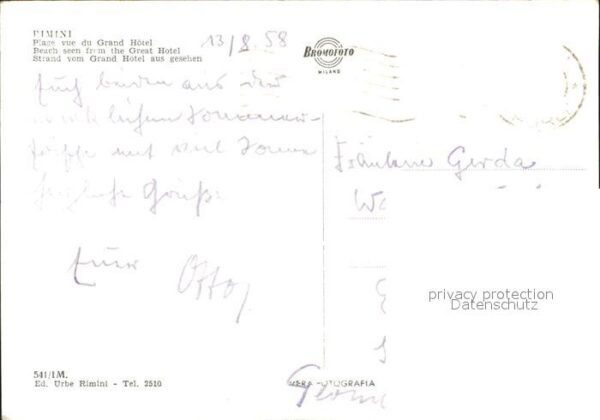 RIMINI
Plage vue du Grand Hôtel
Beach seen from the Great Hotel
Strand vom Grand Hotel aus gesehen
13/8.58
BROMOFOTO
MILANO
Euch beiden aus der
mit viel Sonne
herzliche Grüße
Euer
Otto
Fräulein Gerda
privacy protection
Datenschutz
541/IM.
Ed. Urbe Rimini - Tel. 2510
VERA FOTOGRAFIA